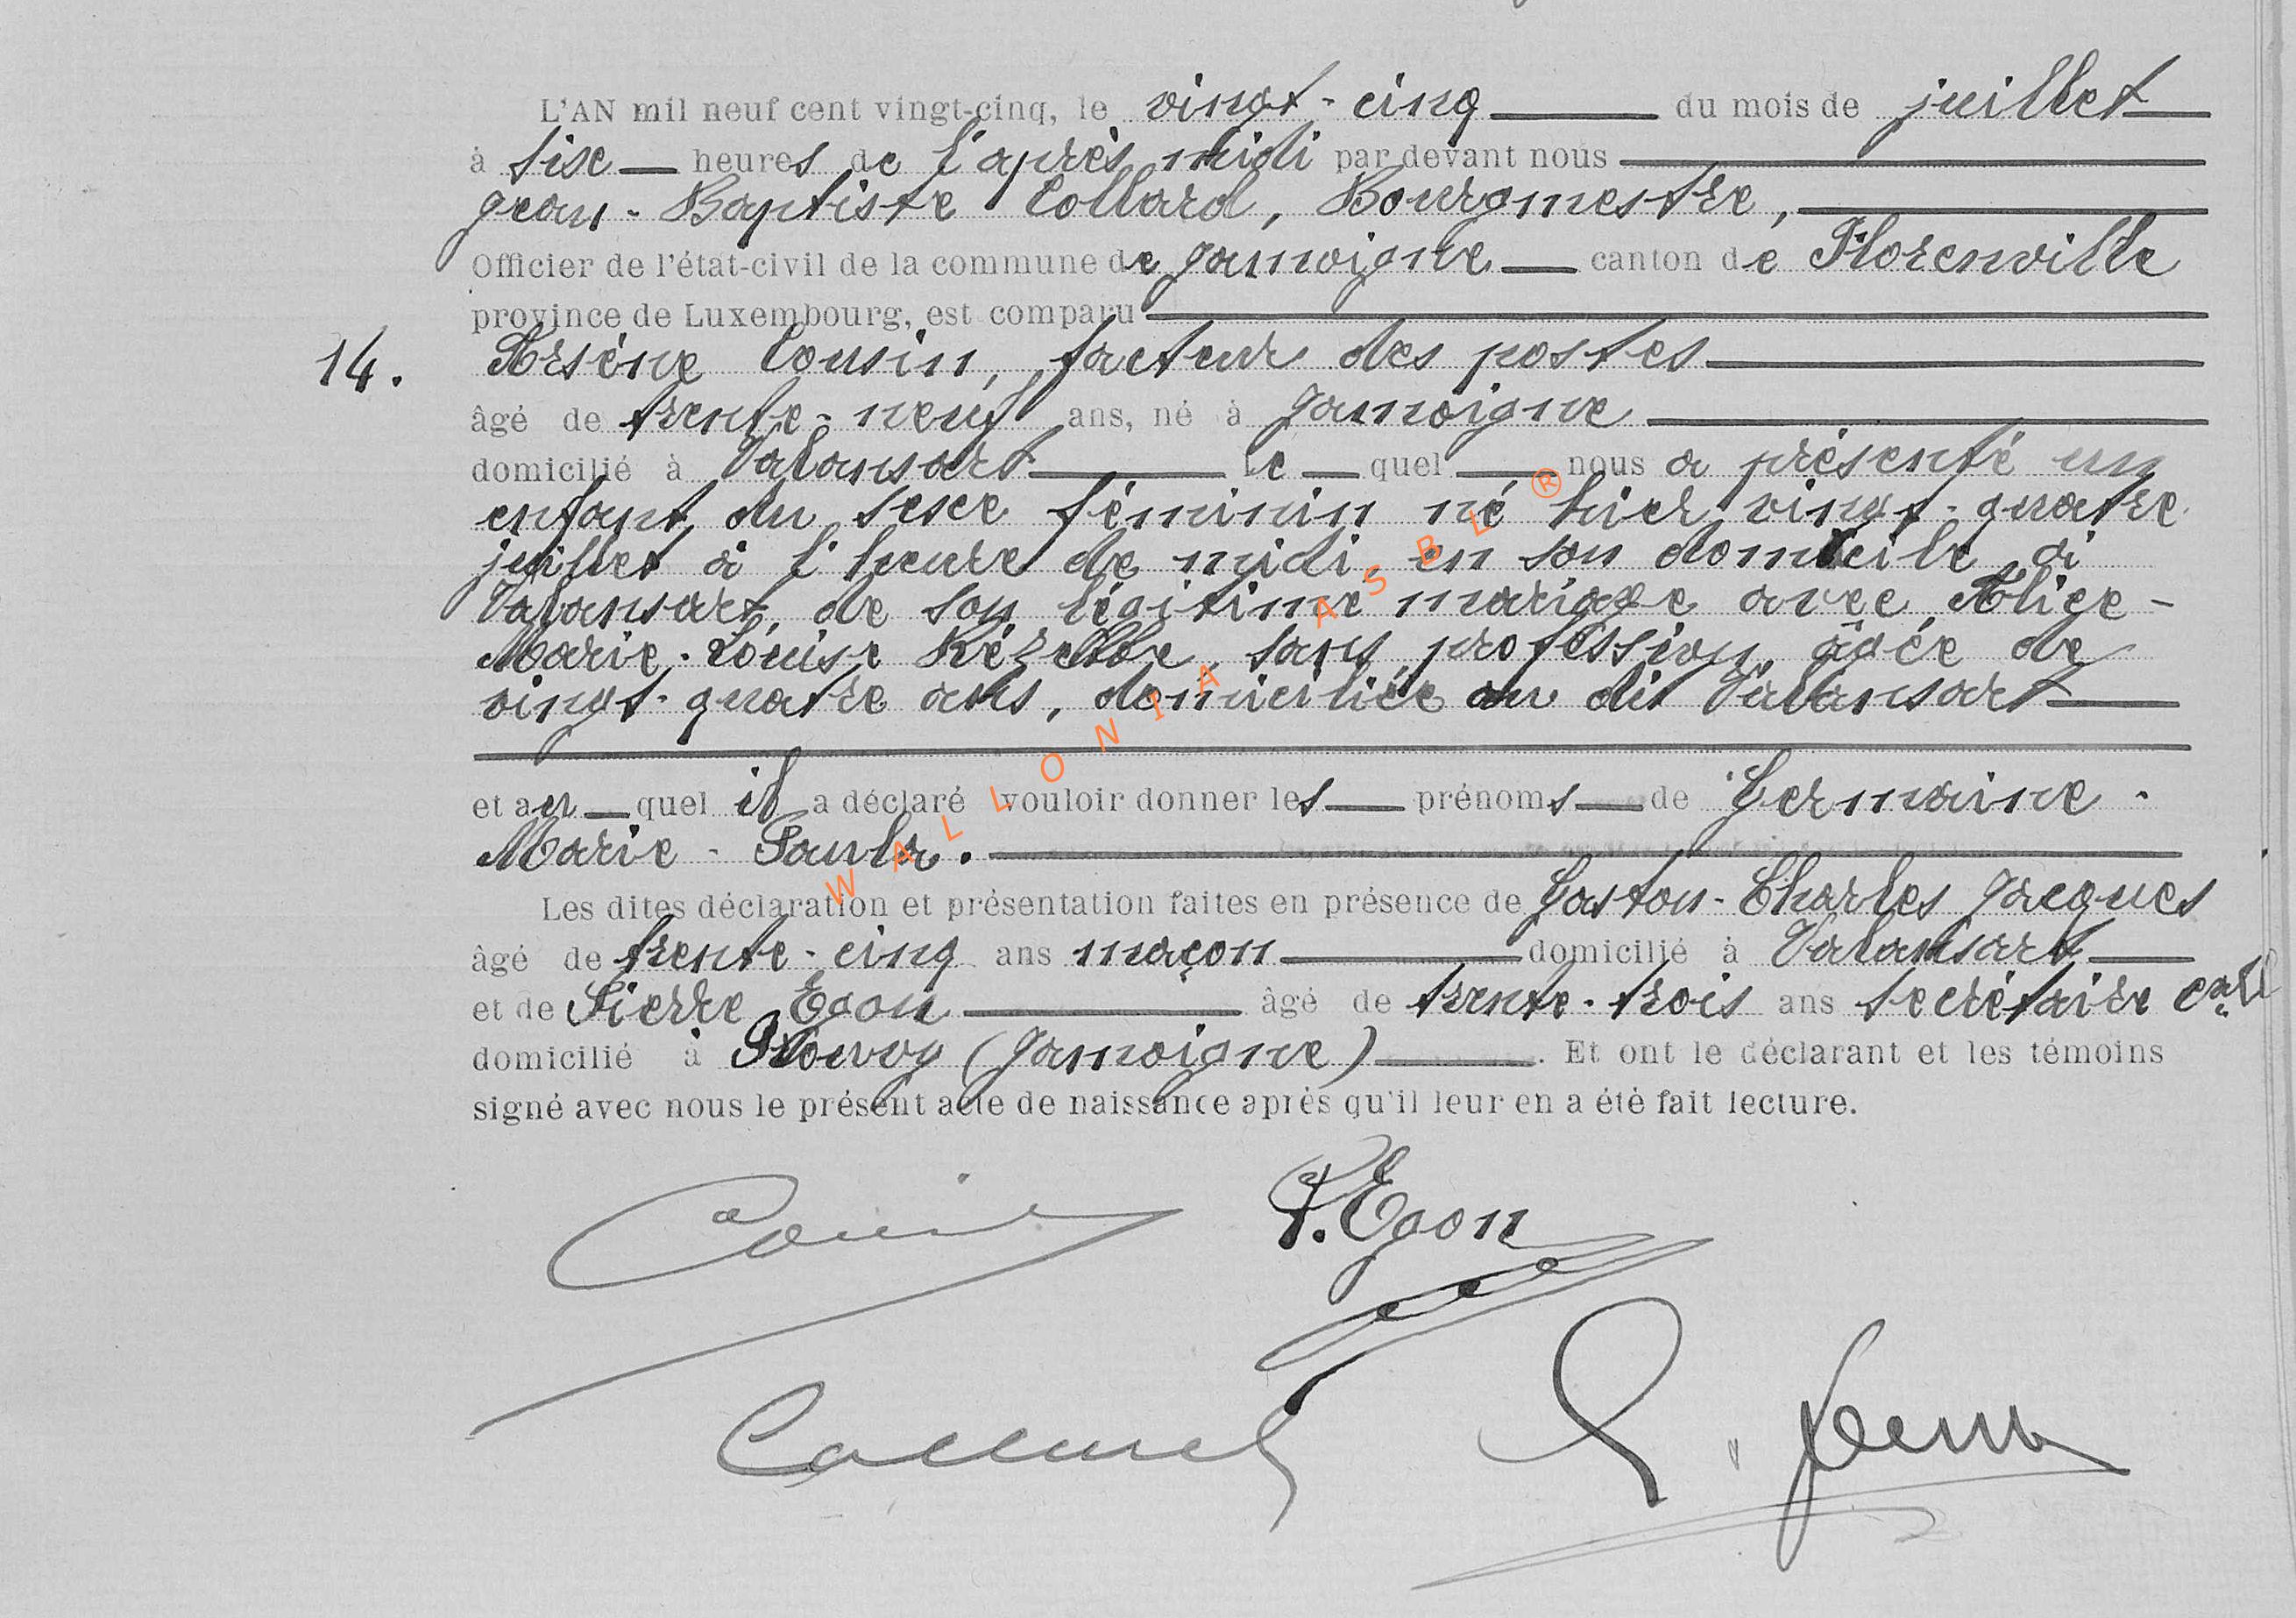 L'AN mil neuf cent vingt-cinq, le vingt-cinq du mois de juillet
à sixe heures de l'après midi par devant nous
Jean-Baptiste Collard, Bourgmestre,
Officier de l'état-civil de la commune de Jamoigne canton de Florenville
province de Luxembourg, est comparu
14. Arsène Cousin, facteur des postes
âgé de trente-neuf ans, né à Jamoigne
domicilié à Valansart le quel nous a présenté un
enfant du sexe féminin né hier vingt-quatre
juillet à l'heure de midi, en son domicile à
Valansart, de son légitime mariage avec Alice-
Marie-Louise sans profession, âgée de
vingt-quatre ans, domiciliée au dit Valansart
et au quel il a déclaré vouloir donner les prénoms de Germaine-
Marie-Paula.
Les dites déclaration et présentation faites en présence de Gaston-Charles Jacques
âgé de trente-cinq ans maçon domicilié à Valansart
et de Pierre Egon âgé de trente-trois ans secrétaire cal
domicilié à Prouvoy (Jamoigne). Et ont le déclarant et les témoins
signé avec nous le présent acte de naissance après qu'il leur en a été fait lecture.
Cousin P. Egon
WALLONIA ASBL ®